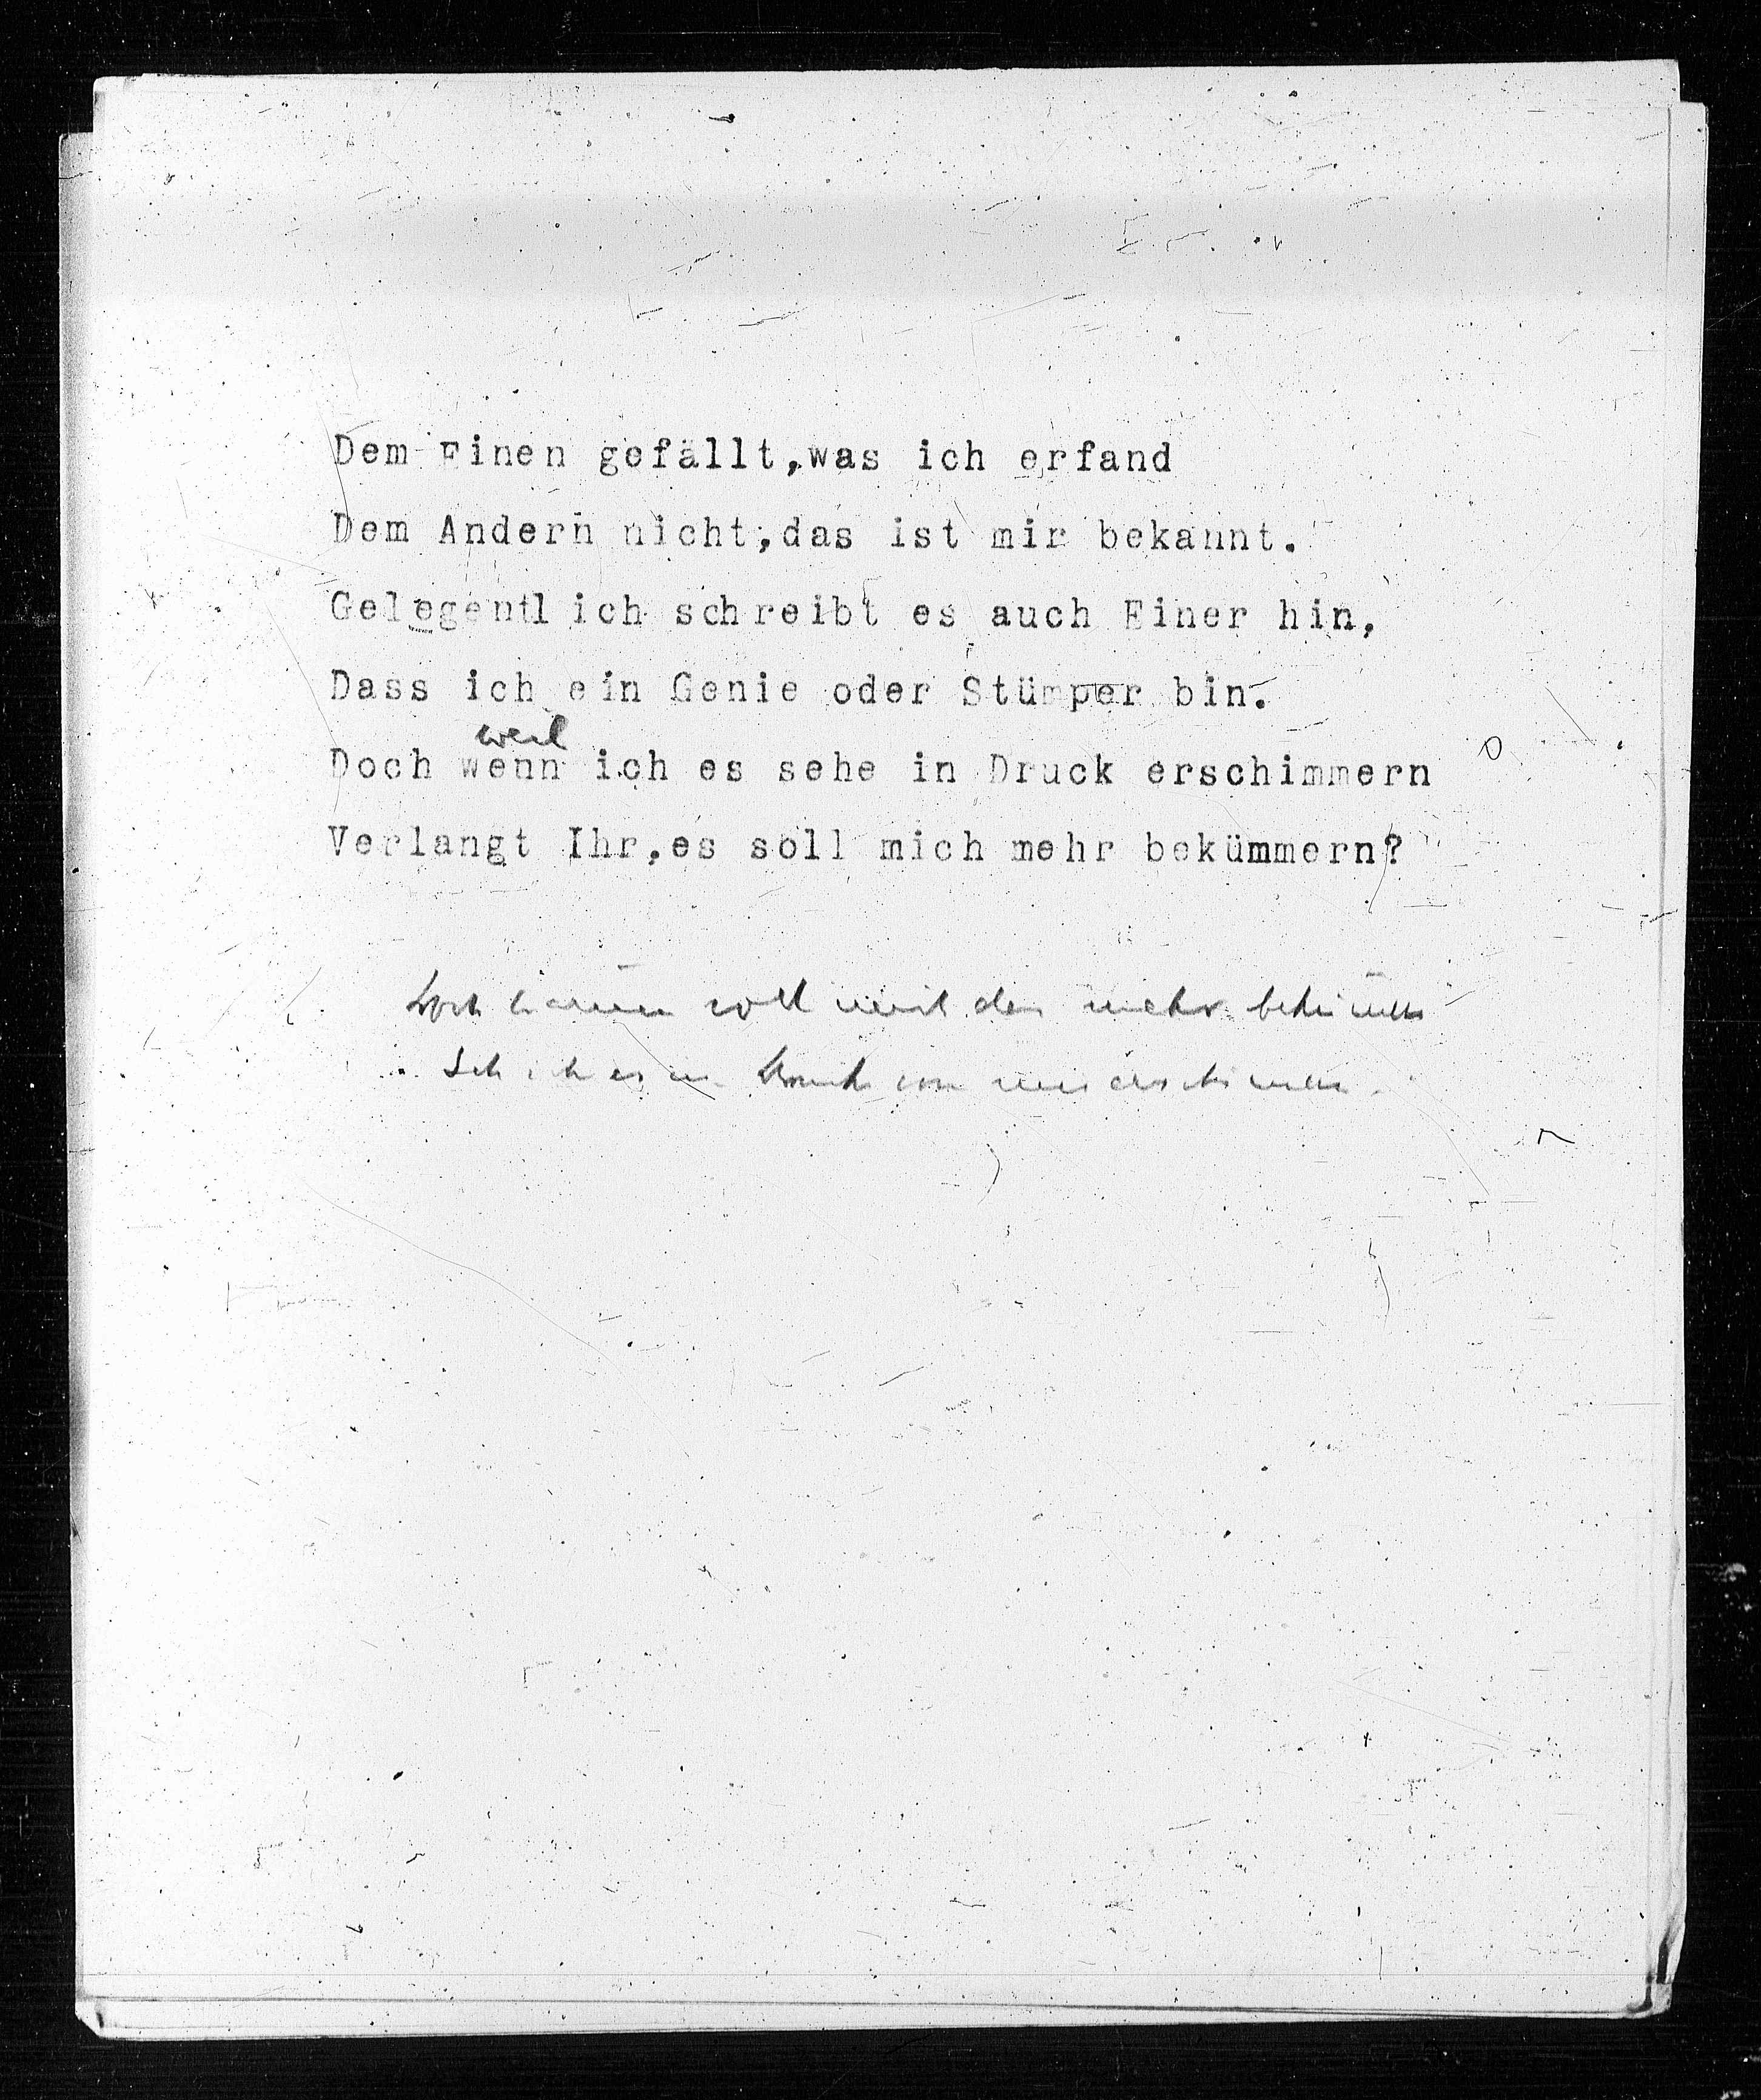 Dem Einen gefällt,was ich erfand
Dem Andern nicht,das ist mir bekannt.
Gelegentlich schreibt es auch Einer hin,
Dass ich ein Genie oder Stümper bin.
weil
Doch wenn ich es sehe in Druck erschimmern
Verlangt Ihr,es soll mich mehr bekümmern?
Doch warum soll mich mehr
Seh ich es Druck